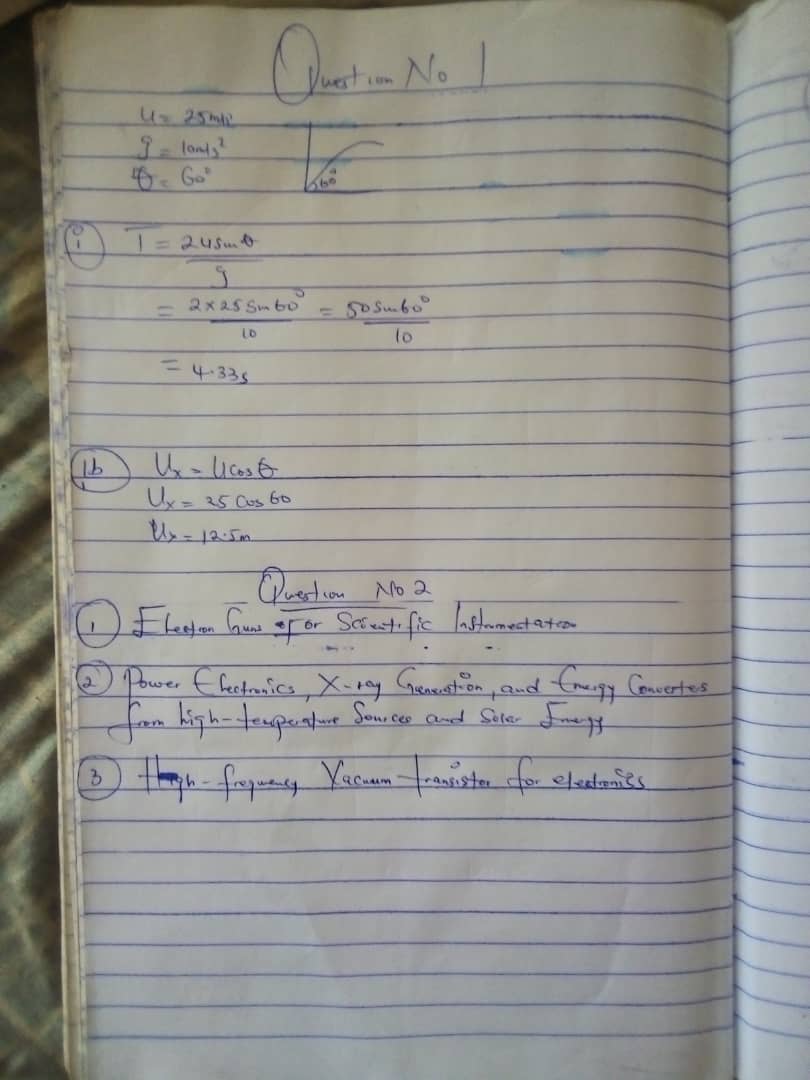 Question No 1
U = 25m/s
g = 10m/s²
θ = 60°
60°
i T = 2usinθ
g
= 2×25 Sin 60° = 50 Sin 60°
10 10
= 4.33s
1b Ux = Ucosθ
Ux = 25 Cos 60
Ux = 12.5m
Question No 2
1 Electron Guns for Scientific Instrumentation
2 Power Electronics, X-ray Generation, and Energy Converters
from high-temperature Sources and Solar Energy
3 High-frequency Vacuum transistor for electronics